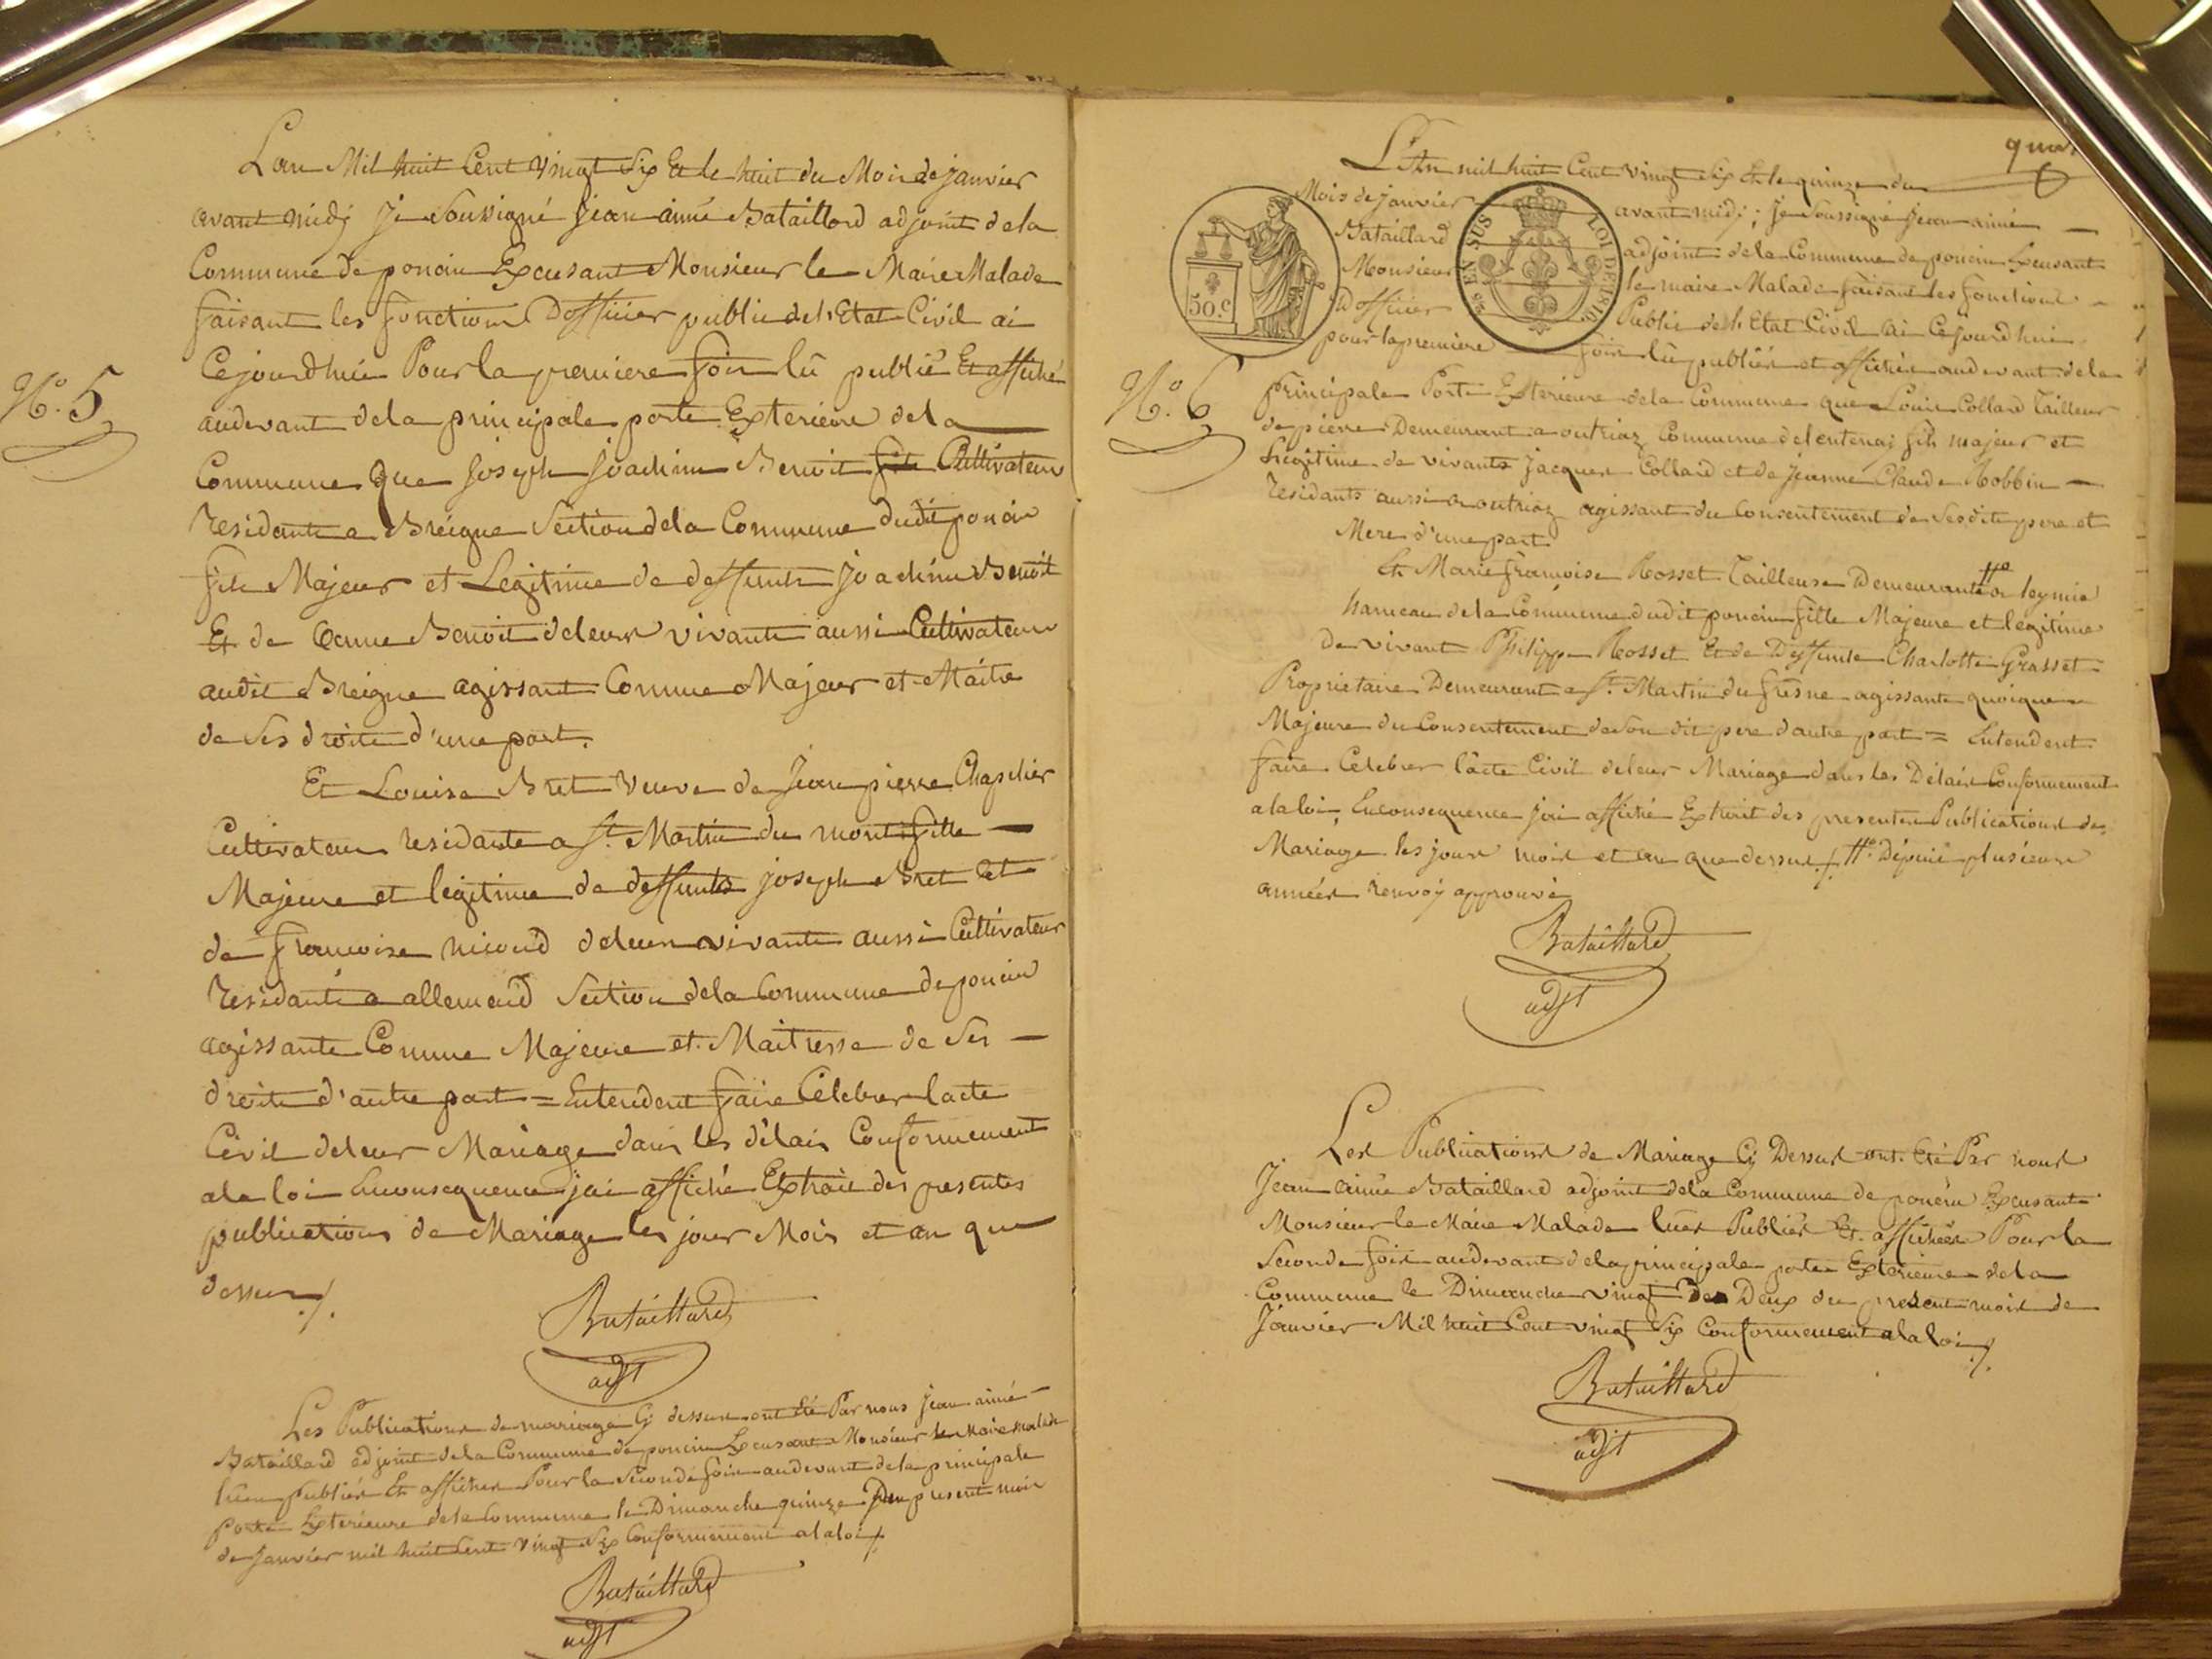 Lan Mil huit Cent Vingt Six Et le huit du Mois de janvier
avant midj je soussigné jean aimé Bataillard adjoint dela
Commune de poncin Excusant Monsieur le Maire Malade
faisant les fonctions Dofficier public del'Etat Civil ai
Cejourdhui Pour la premiere fois lû publié Et affiché
audevant dela principale porte Exterieure dela
N.º 5
Commune que joseph joachim Benoit Cultivateur
residante a Breigne Section dela Commune dudit poncin
fils Majeur et Legitime de deffunts joachim Benoit
Et de Benoit deleur vivants aussi Cultivateurs
audit Breigne agissant Comme Majeur et Maitre
de Ses droits d'une part.
Et Louise Bret veuve de Jean pierre Chapelier
Cultivateur residante a St. Martin du mont fille
Majeure et legitime de deffunts joseph Bret Et
de francoise nicoud deleur vivants aussi Cultivateur
residants a allemend Section dela Commune de poncin
agissante Comme Majeure et Maitresse de Ses
droits d'autre part = Entendent faire Célebrer lacte
Civil deleur Mariage dans les délais Conformement
ala loi Enconsequence jai affiché Extrait des presentes
publications de Mariage les jour Mois et an que
dessus ./.
Bataillard
adjt
Les Publications de mariage Cj dessus ont été Par nous jean aimé
Bataillard adjoint dela Commune de poncin Excusant Monsieur le Maire Malade
lues publiées Et affichées Pour la Seconde fois audevant dela principale
Porte Exterieure dela Commune le Dimanche quinze Du present mois
de janvier mil huit Cent vingt Six Conformement ala loi ./.
Bataillard
adjt
L'An mil huit Cent vingt Six Et le quinze du
Mois de janvier avant midj ; je Soussigné jean aimé
Bataillard adjoint dela Commune de poncin Excusant
Monsieur le maire Malade faisant les fonctions
D'officier Public del'Etat Civil ai Cejourdhui
pour la premiere fois lû publiés et affichés audevant dela
50.C
EN SUS
LOI DE 1816
N.º 6
Principale Porte Exterieure dela Commune que Louis Collard Tailleur
de pierre Demeurant a outriaz Commune delentenaj fils majeur et
Legitime de vivants jacques Collard et de jeanne Claude Robbin
residants aussi a outriaz agissant du Consentement de Sesdits pere et
Mere d'une part
Et Marie francoise Rosset Tailleuse Demeurante a leymia
hameau dela Commune dudit poncin fille Majeure et legitime
De vivant Philippe Rosset Et de Deffunte Charlotte Grasset
Proprietaire Demeurant a St. Martin du fresne agissante quoique
Majeure du Consentement de Son dit pere d'autre part = Entendent
faire Célebrer l'acte Civil deleur Mariage dans les Délais Conformement
ala loi, Enconsequence jai affiché Extrait des presentes Publications de
Mariage les jour mois et an que dessus ./. Dépuis plusieurs
années renvoj approuvé
Bataillard
adjt
Les Publications de Mariage Cj Dessus ont Eté Par nous
Jean aimé Bataillard adjoint dela Commune de poncin Excusant
Monsieur le Maire Malade lues Publiés Et affichées Pour la
Seconde fois audevant dela principale porte Exterieure dela
Commune le Dimanche vingt Deux du present mois de
Janvier Mil huit Cent vingt Six Conformement ala loi ./.
Bataillard
adjt